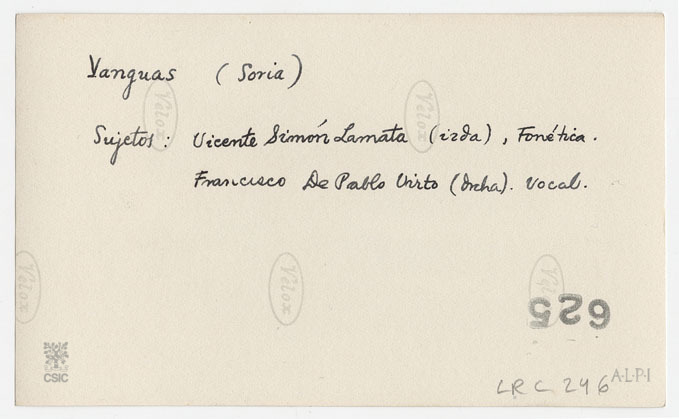 Yanguas (Soria)
Sujetos: Vicente Simón Lamata (izda), Fonética.
Francisco De Pablo Virto (drcha). Vocal.
Velox
Velox
Velox
Velox
Velox
625
CSIC
LRC 246
A·L·P·I